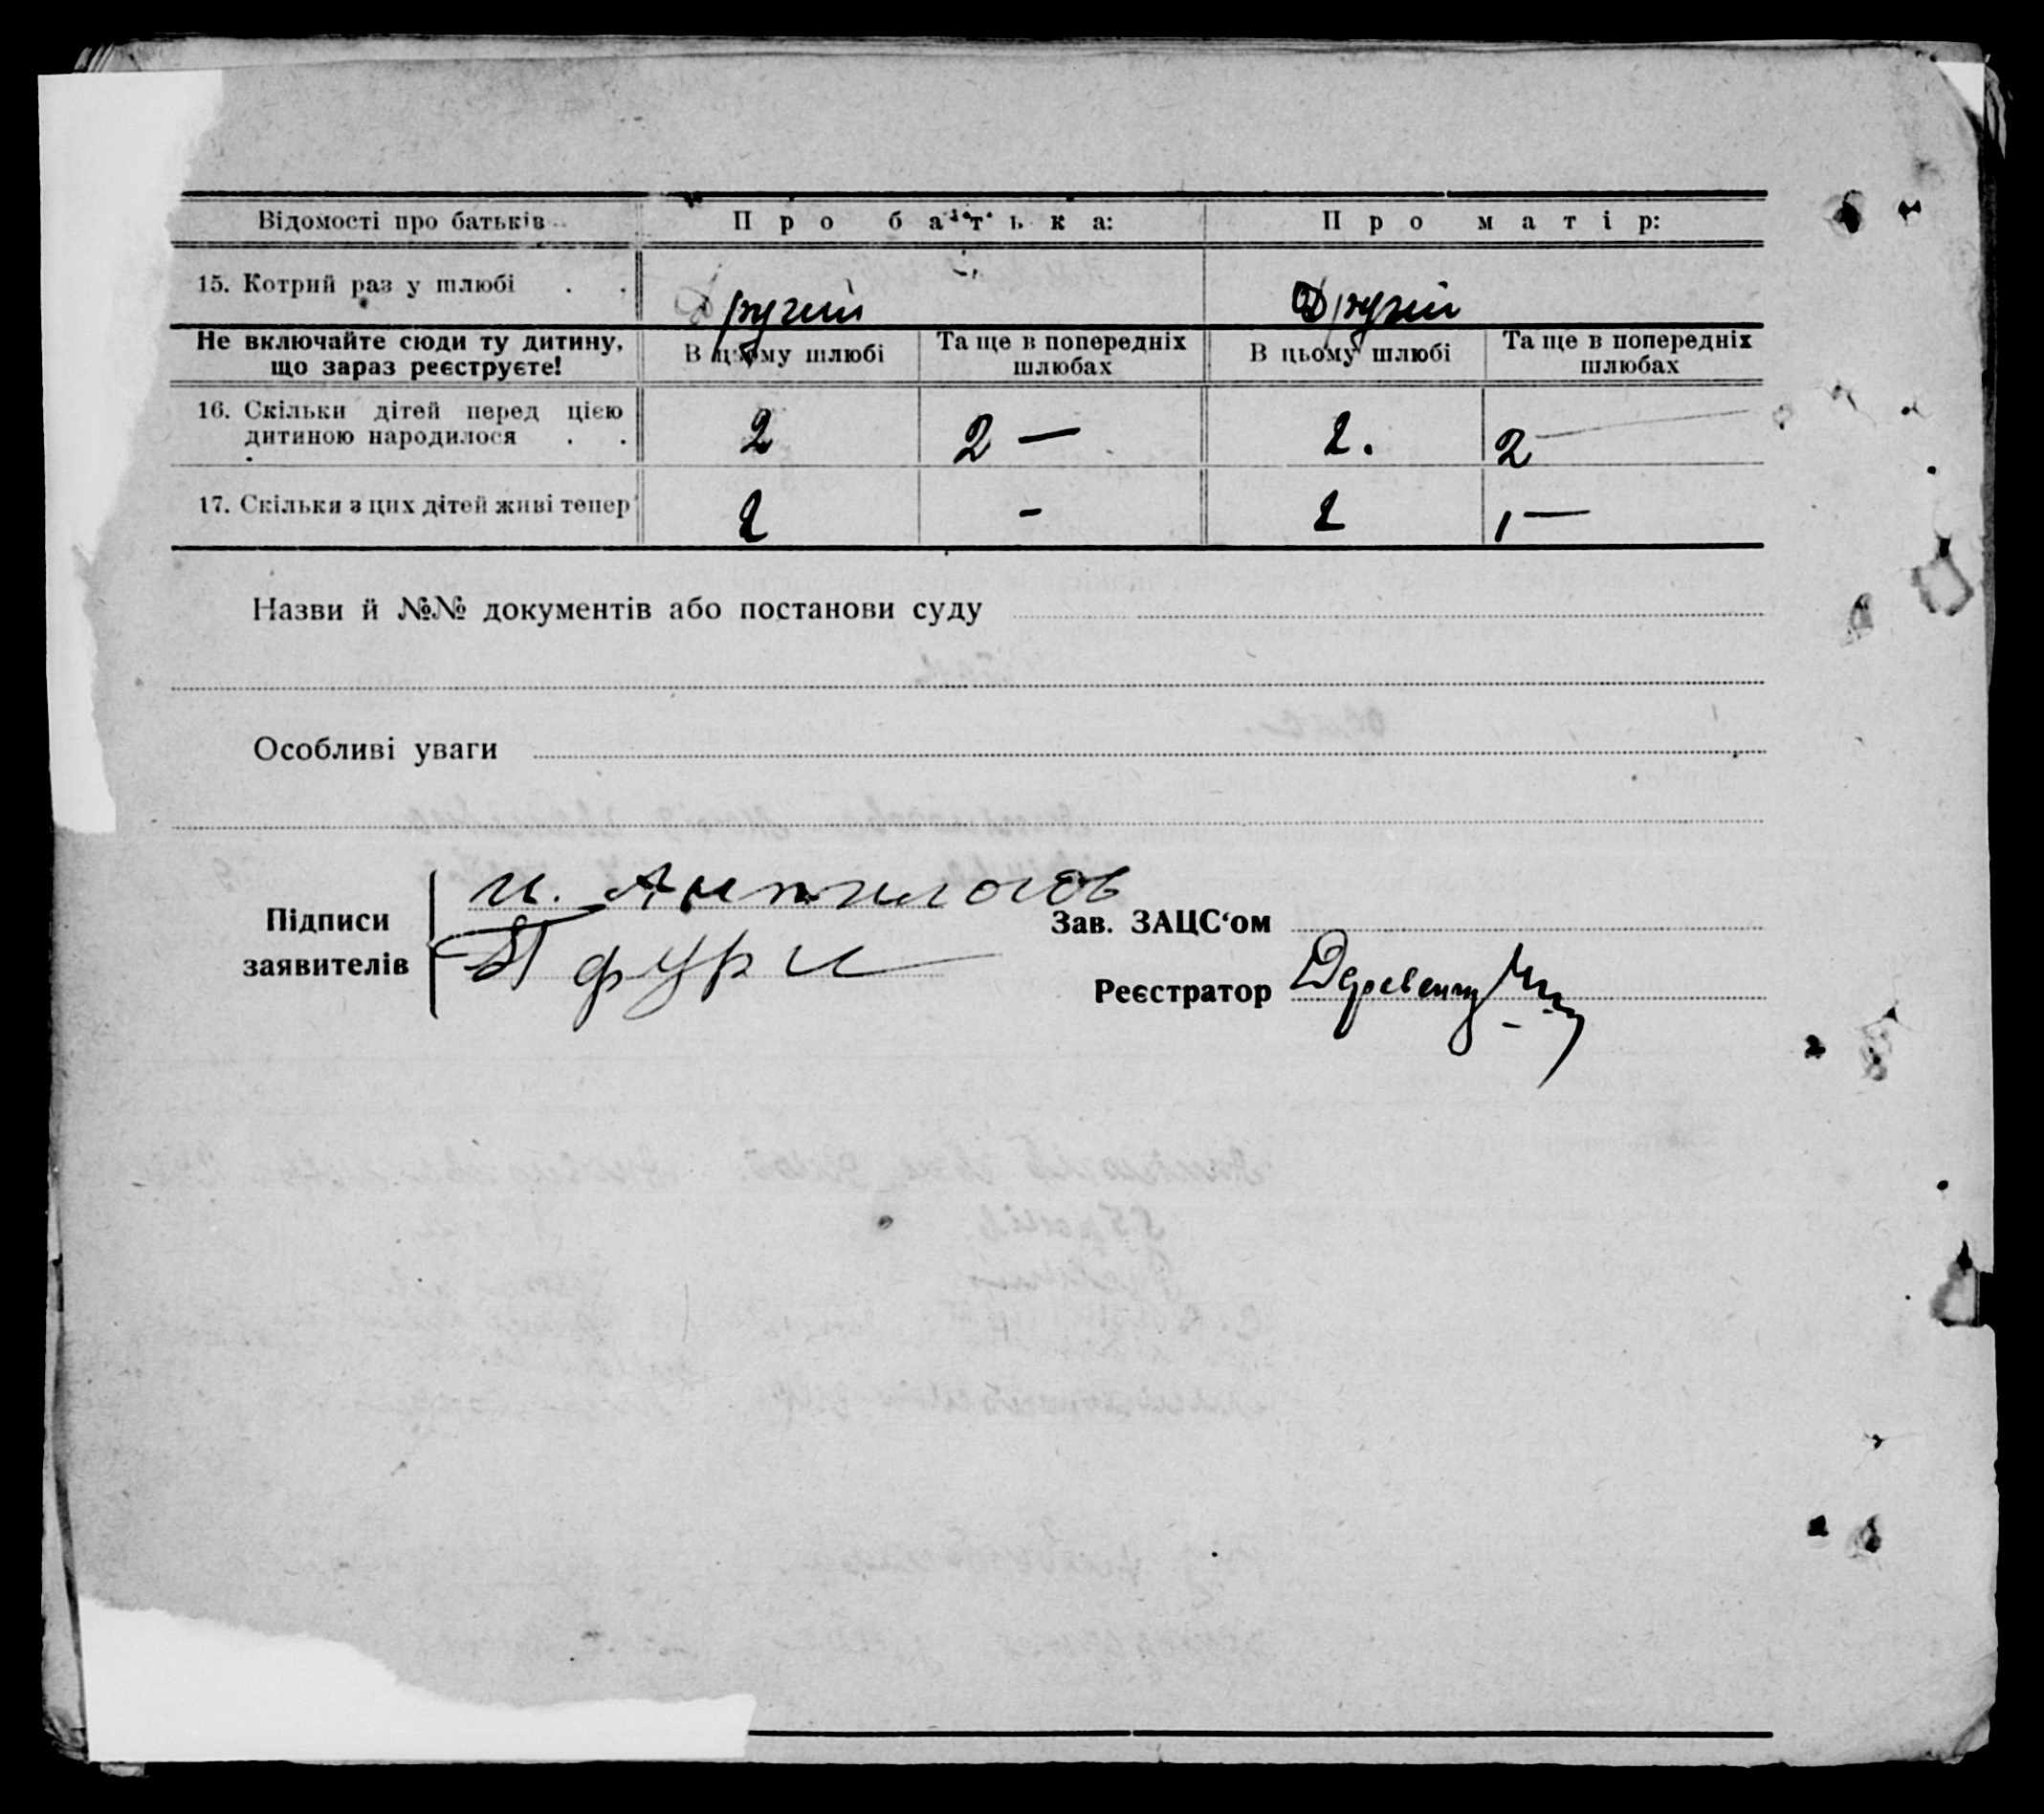 Відомості про батьків Про батька: Про матір:
15. Котрий раз у шлюбі . . Другий Другий
Не включайте сюди ту дитину, що зараз реєструєте! В цьому шлюбі Та ще в попередніх шлюбах В цьому шлюбі Та ще в попередніх шлюбах
16. Скільки дітей перед цією
дитиною народилося . . 2 2 — 2. 2 —
17. Скільки з цих дітей живі тепер 2 - 2 1 —
Назви й №№ документів або постанови суду
Особливі уваги
и. Антилогов
Підписи заявителів
Зав. ЗАЦС‘ом
фури
Реєстратор